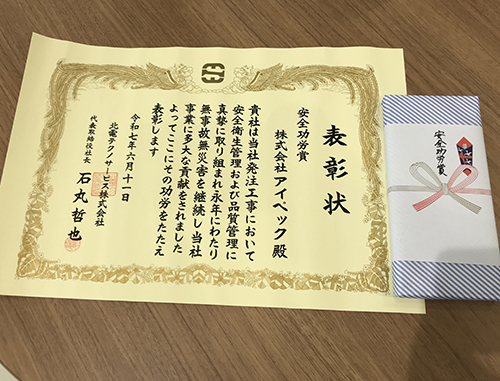 表彰状
安全功労賞
株式会社アイペック 殿
貴社は当社発注工事において
安全衛生管理および品質管理に
真摯に取り組まれ永年にわたり
無事故無災害を継続し当社
事業に多大な貢献をされました
よってここにその功労をたたえ
表彰します
令和七年六月十一日
北電テクノサービス株式会社
代表取締役社長 石丸哲也
安全功労賞